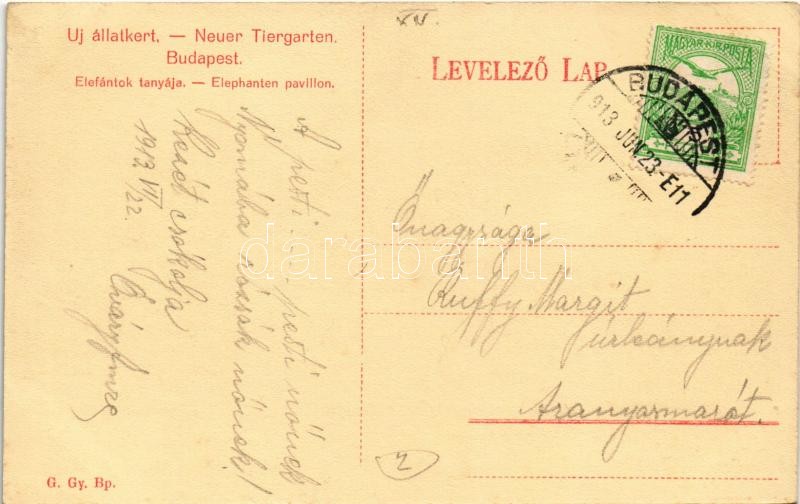 XV.
Uj állatkert. — Neuer Tiergarten.
Budapest.
Elefántok tanyája. — Elephanten pavillon.
LEVELEZŐ LAP
MAGYAR KIR. POSTA
BUDAPEST
913 JUN 23-E11
A pesti ... pesti nőnek
Nyomába rózsák nőnek!
Kezét csókolja
Imre
1913 VI/22.
Őnagysága
Ruffy Margit
úrleánynak
Aranyosmarót.
2
G. Gy. Bp.
darabanth